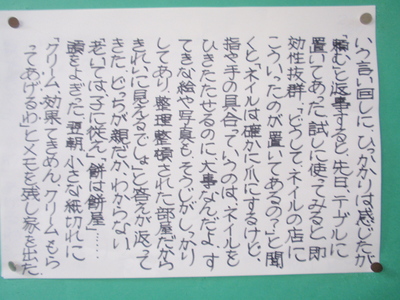 いう言い回しに、ひっかかりは感じたが
「頼む」と返事すると、先日、テーブルに
置いてあった。試しに使ってみると、即
効性抜群。「どうしてネイルの店に
こういったのが置いてあるの？」と聞
くと「ネイルは確かに爪にするけど、
指や手の具合っていうのは、ネイルを
ひきたたせるのに、大事なんだよ。す
てきな絵や写真も、そうじがしっかり
してあり、整理整頓された部屋だから
きれいに見えるでしょ」と答えが返って
きた。どっちが親だかわからない。
「老いては、子に従え」「餅は餅屋」……
頭をよぎった。翌朝、小さな紙切れに
「クリーム、効果てきめん。クリームもら
ってあげるわ」とメモを残し家を出た。